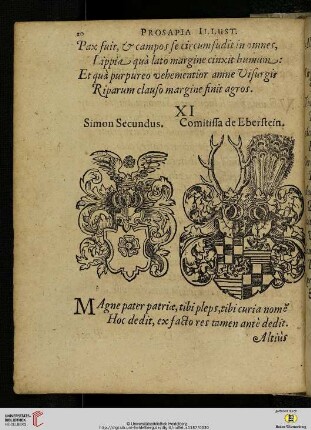 20 PROSAPIA ILLUST.
Pax fuit, & campos se circumfudit in omnes,
Lippia quà lato margine cinxit humum:
Et quà purpureo vehementior amne Visurgis
Riparum clauso margine finit agros.
XI
Simon Secundus. Comitissa de Eberstein.
MAgne pater patriæ, tibi pleps, tibi curia nomē
Hoc dedit, ex facto res tamen antè dedit.
Altiùs
UNIVERSITÄTS-
BIBLIOTHEK
HEIDELBERG
© Universitätsbibliothek Heidelberg